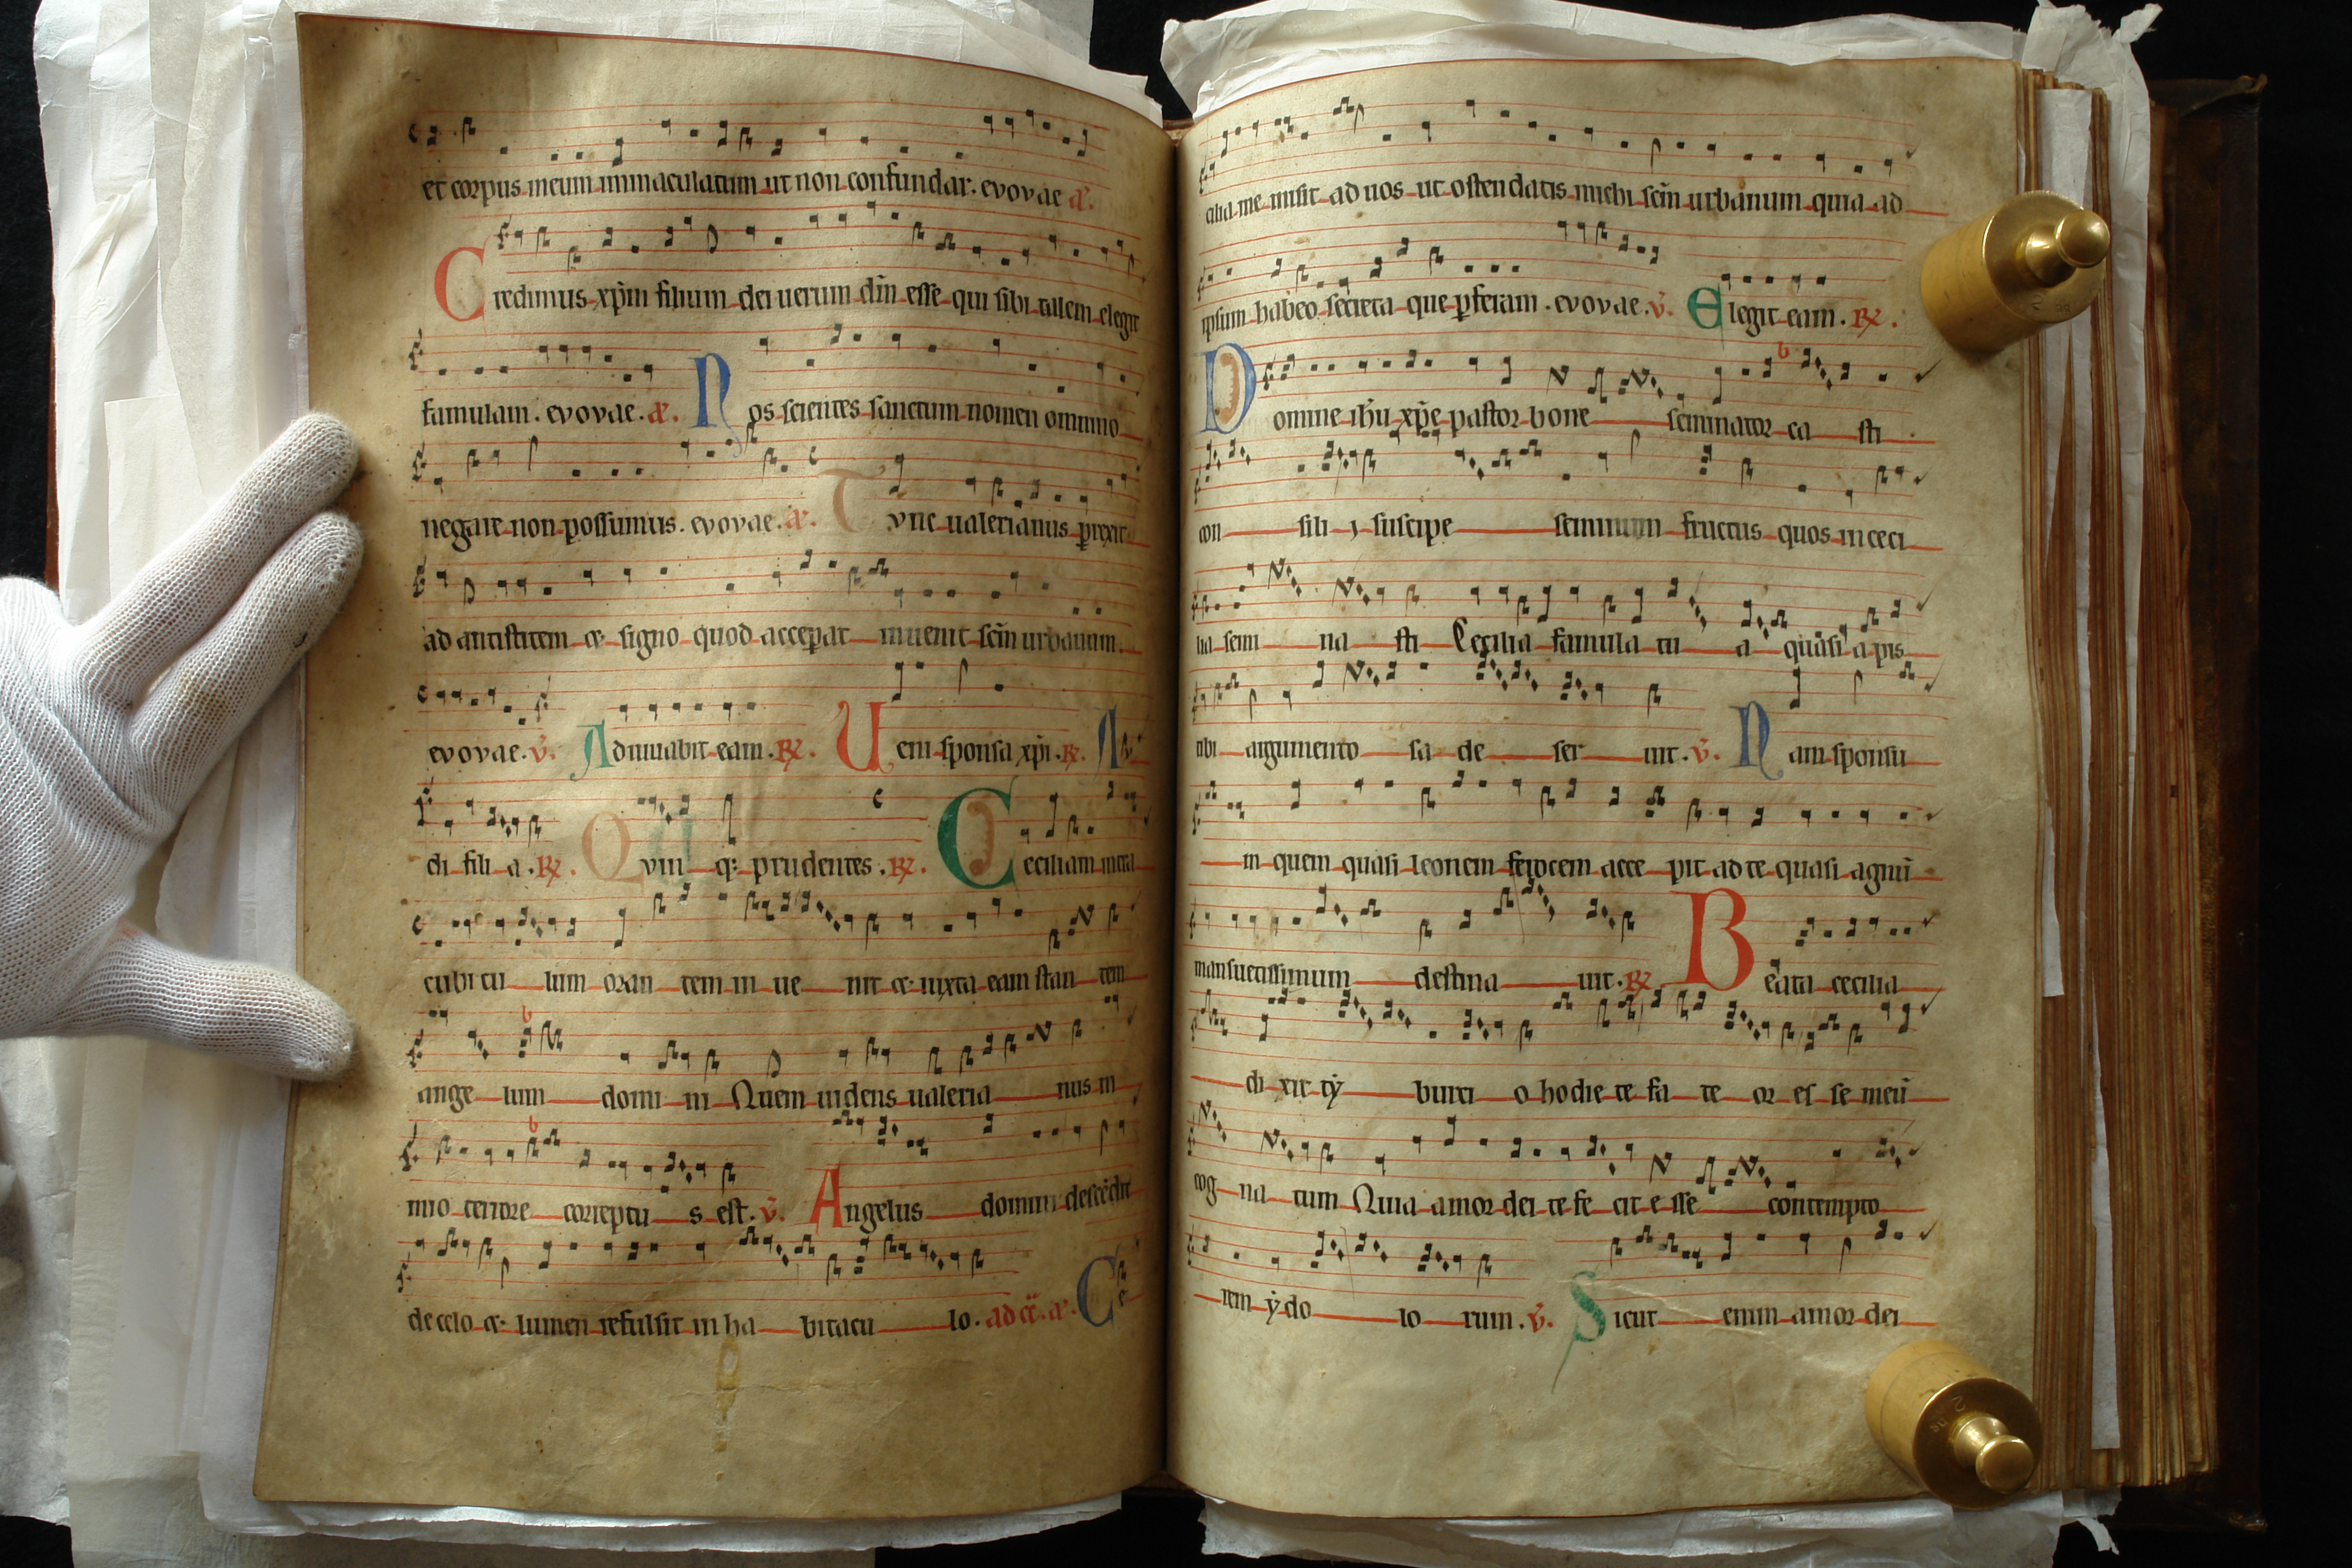 et corpus meum immaculatum ut non confundar. evovae a.
Credimus xp̄m filium dei uerum dn̄ esse qui sibi talem elegit
famulam. evovae. a. Nos scientes sanctum nomen omnino
negare non possumus. evovae. a. Tvnc ualerianus prexit
ad antistitem & signo quod acceperat inuenit scm̄ urbanum.
evovae. v̄. Adiuuabit eam. R̸. Ueni sponsa xp̄i. R̸. Au
di fili a. R̸. Qvin q; prudentes. R̸. Ceciliam intra
cubicu lum oran tem in ue nit & iuxta eam stan tem
ange lum domi ni Quem uidens ualeria nus ni
mio terrore correptu s est. v̄. Angelus domini descēdit
de celo & lumen refulsit in ha bitacu lo. ad cā. a. Ce
cilia me misit ad uos ut ostendatis michi scm̄ urbanum quia ad
ipsum habeo secreta que pferam. evovae. v̄. Elegit eam. R̸.
Domine ihū xp̄e pastor bone seminator ca sti
con sili j suscipe seminum fructus quos in ceci
lia semi na sti Cecilia famula tu a quasi apis
tibi argumento sa de ser uit. v̄. Nam sponsu
in quem quasi leonem ferocem acce pit ad te quasi agnū
mansuetissimum destina uit. R̸. Beata cecilia
di xit tẏ burti o hodie te fa te or es se meū
cog na tum Quia amor dei te fe cit e sse contempto
rem ẏdo lo rum. v̄. Sicut enim amor dei